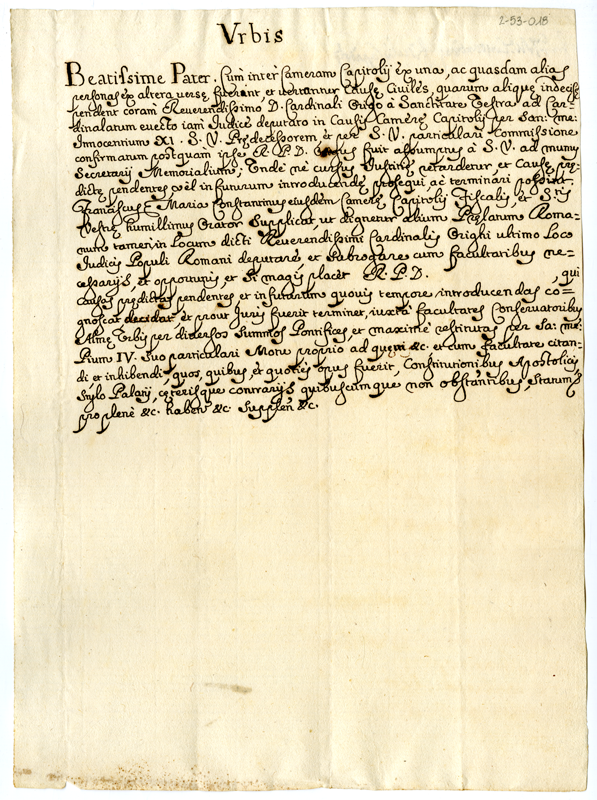 2-53-018
Vrbis
Beatissime Pater. Cum inter Cameram Capitolij ex una, ac quasdam alias
personas ex altera versę fuerint, et vertantur Causę Ciuiles, quarum aliquę indecisę
pendent coram Reuerendissimo D. Cardinali Origo à Sanctitate Vestra ad Car-
dinalatum euecto iam Iudice deputato in Causis Camerę Capitolij per San: me:
Innocentium XI. S. V. Prędecessorem, et per S. V. particulari Commissione
confirmatum postquam ipse R. P. D. fuit assumptus à S. V. ad munus
Secretarij Memorialium, Vnde nè cursus Iustitię retardetur, et Causę prę-
dictę pendentes vel in futurum introducendę prosequi ac terminari possint.
Franciscus Maria Constantinus eiusdem Camerę Capitolij Fiscalis, et S.tis
Vestrę humillimus Orator Supplicat, ut dignetur alium Pręlatum Roma-
num tamen, in Locum dicti Reuerendissimi Cardinalis Orighi ultimo Loco
Iudicis Populi Romani deputare et subrogare cum facultatibus ne-
cessarijs, et opportunis, et Si magis placet R. P. D. , qui
causas prędictas pendentes et in futurum quouis tempore introducendas co=
gnoscat decidat, et prout Iuris fuerit terminet, iuxta facultates Conseruatoribus
Almę Vrbis per diuersos Summos Pontifices, et maximè restitutas per Sa: me:
Pium IV. Suo particulari Motu proprio ad quem &c. et cum facultate citan-
di et inhibendi, quos, quibus, et quoties opus fuerit, Constitutionibus Apostolicis,
Stylo Palatij, cęterisque contrarijs quibuscumque non obstantibus, Statum
pro plenè &c. haben &c. Supplen &c.